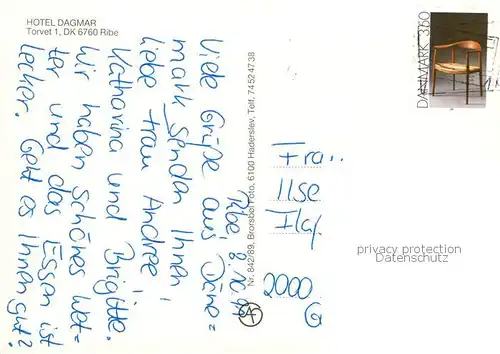 HOTEL DAGMAR
Torvet 1, DK 6760 Ribe
Ribe
Viele Grüße aus Däne=
mark senden Ihnen,
liebe Frau Andree!
Katharina und Brigitte.
Wir haben schönes Wet=
ter und das Essen ist
lecker. Geht es Ihnen gut?
Nr. 842/89, Brorsbøl Foto, 6100 Haderslev, Telf. 74524738
DANMARK 3.50
Frau
Ilse
2000
privacy protection
Datenschutz